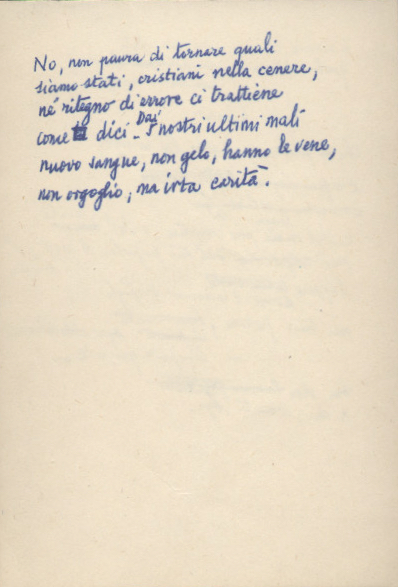 No, non paura di tornare quali
siamo stati, cristiani nella cenere,
né ritegno di errore ci trattiene
come dici. Dai nostri ultimi mali
nuovo sangue, non gelo, hanno le vene,
non orgoglio, ma irta carità.